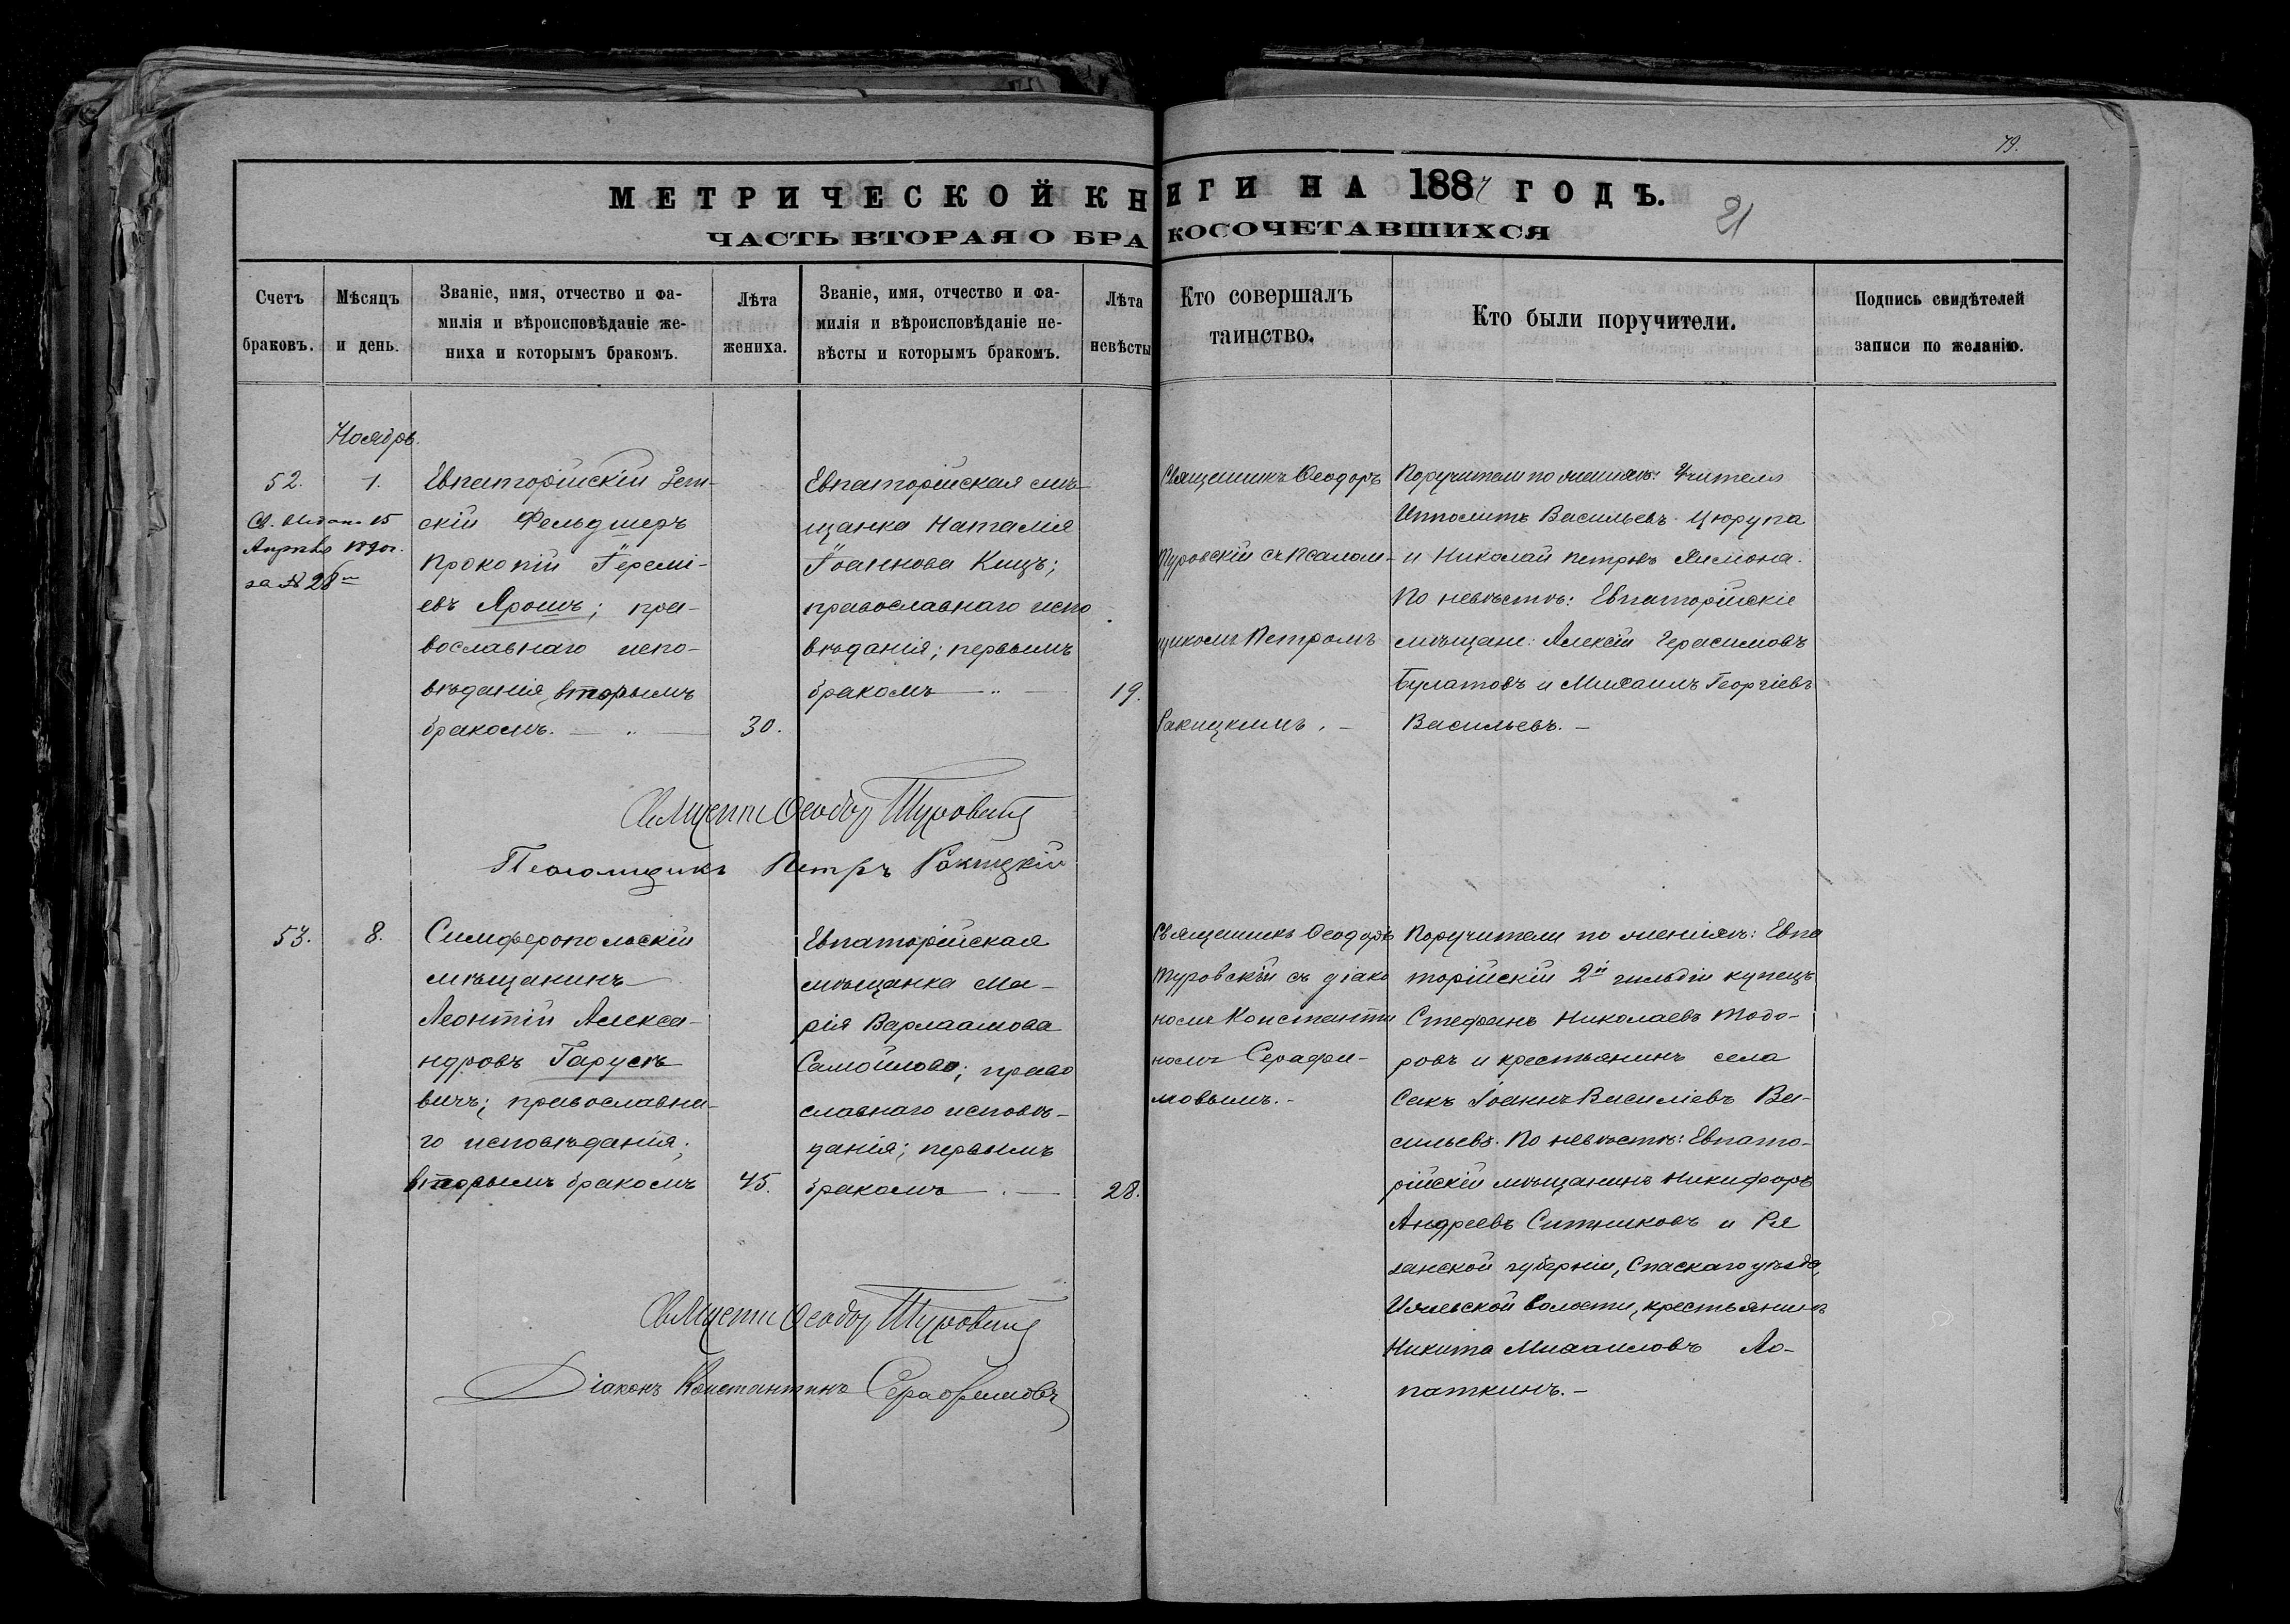 79.
МЕТРИЧЕСКОЙ КНИГИ НА 1887 ГОДЪ.
21
ЧАСТЬ ВТОРАЯ О БРАКОСОЧЕТАВШИХСЯ
Счетъ
браковъ.
Мѣсяцъ
и день.
Званіе, имя, отчество и фа-
милія и вѣроисповѣданіе же-
ниха и которымъ бракомъ.
Лѣта
жениха.
Званіе, имя, отчество и фа-
милія и вѣроисповѣданіе не-
вѣсты и которымъ бракомъ.
Лѣта
невѣсты
Кто совершалъ
таинство.
Кто были поручители.
Подпись свидѣтелей
записи по желанію.
Ноябрь.
52.
Св. выдано 15
Апрѣля 1890г.
за № 28
1.
Евпаторійскій Зем-
скій Фельдшеръ
Прокопій Іеремі-
евъ Ярошъ; пра-
вославнаго испо-
вѣданія, вторымъ
бракомъ. —
30.
Евпаторійская мѣ-
щанка Наталія
Іоаннова Кицъ;
православнаго испо
вѣданія; первымъ
бракомъ —
19.
Священникъ Ѳеодоръ
Туровскій съ Псалом-
щикомъ Петромъ
Ракицкимъ. —
Поручители по женихѣ: Учителя
Ипполитъ Васильевъ Цюрупа
и Николай Петровъ Лимона.
По невѣстѣ: Евпаторійскіе
мѣщане: Алексѣй Герасимовъ
Булатовъ и Михаилъ Георгіевъ
Васильевъ. —
Священникъ Ѳеодоръ Туровскій
Псаломщикъ Петръ Ракицкій
53.
8.
Симферопольскій
мѣщанинъ
Леонтій Алекса-
ндровъ Гарусе
вичъ; православна-
го исповѣданія;
вторымъ бракомъ
45.
Евпаторійская
мѣщанка Ма-
рія Варлаамова
Самойлова; право
славнаго исповѣ-
данія; первымъ
бракомъ —
28.
Священникъ Ѳеодоръ
Туровскій съ діако
номъ Константи
номъ Серафи-
мовымъ. -
Поручители по женихѣ: Евпа
торійскій 2й гильдіи купецъ
Стефанъ Николаевъ Тодо-
ровъ и крестьянинъ села
Сакъ Іоаннъ Василіевъ Ва-
сильевъ. По невѣстѣ: Евпато-
рійскій мѣщанинъ Никифоръ
Андреевъ Ситниковъ и Ря
занской губерніи, Спаскаго уѣзда,
волости, крестьянинъ
Никита Михаиловъ Ло-
паткинъ. —
Священникъ Ѳеодоръ Туровскій
Діаконъ Константинъ Серафимовъ